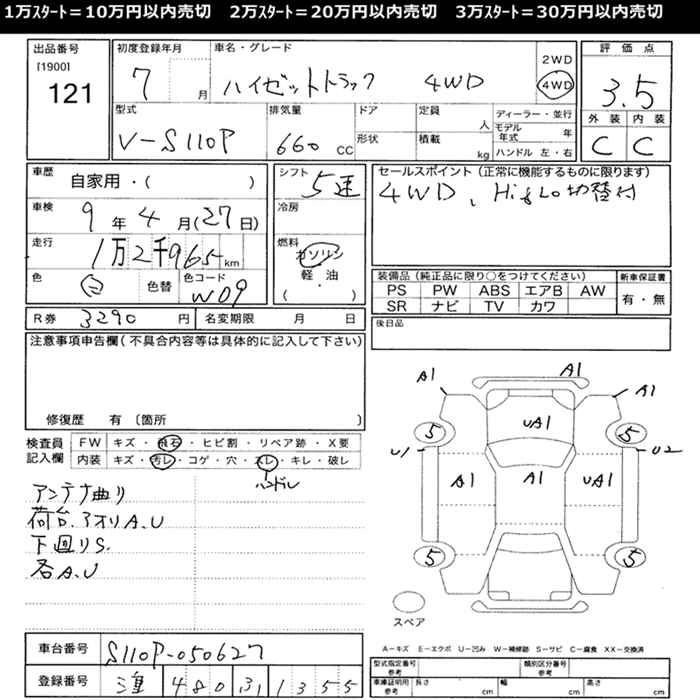 1万スタート＝10万円以内売切　2万スタート＝20万円以内売切　3万スタート＝30万円以内売切
出品番号
[1900]
121
初度登録年月
7 月
車名・グレード
ハイゼットトラック 4WD
2WD
4WD
評価点
3.5
外装 内装
C C
型式
V-S110P
排気量
660 CC
ドア
形状
定員
人
積載
kg
ディーラー・並行
モデル年式 年
ハンドル 左・右
車歴
自家用・( )
車検
9年4月(27日)
走行
1万2千965km
色
白
色替
色コード
W09
シフト
5速
冷房
燃料
ガソリン
軽・油
( ・ )
セールスポイント(正常に機能するものに限ります)
4WD、Hi&Lo切替付
装備品(純正品に限り○をつけてください)
PS PW ABS エアB AW
SR ナビ TV カワ
新車保証書
有・無
後日品
R券 3290 円
名変期限 月 日
注意事項申告欄(不具合内容等は具体的に記入して下さい)
修復歴 有 [箇所 ]
検査員記入欄
FW キズ・飛石・ヒビ割・リペア跡・X要
内装 キズ・汚レ・コゲ・穴・スレ・キレ・破レ
ハンドル
アンテナ曲り
荷台.アオリA.U
下回りS.
各A.U
A1
A1
A1
5
UA1
5
U1
A1
A1
UA1
U2
5
5
スペア
A－キズ E－エクボ U－凹み W－補修跡 S－サビ C－腐食 XX－交換済
車台番号
S110P-050627
登録番号
480 31 1355
型式指定番号
参考
類別区分番号
参考
車庫証明用
参考
長さ cm
幅 cm
高さ cm